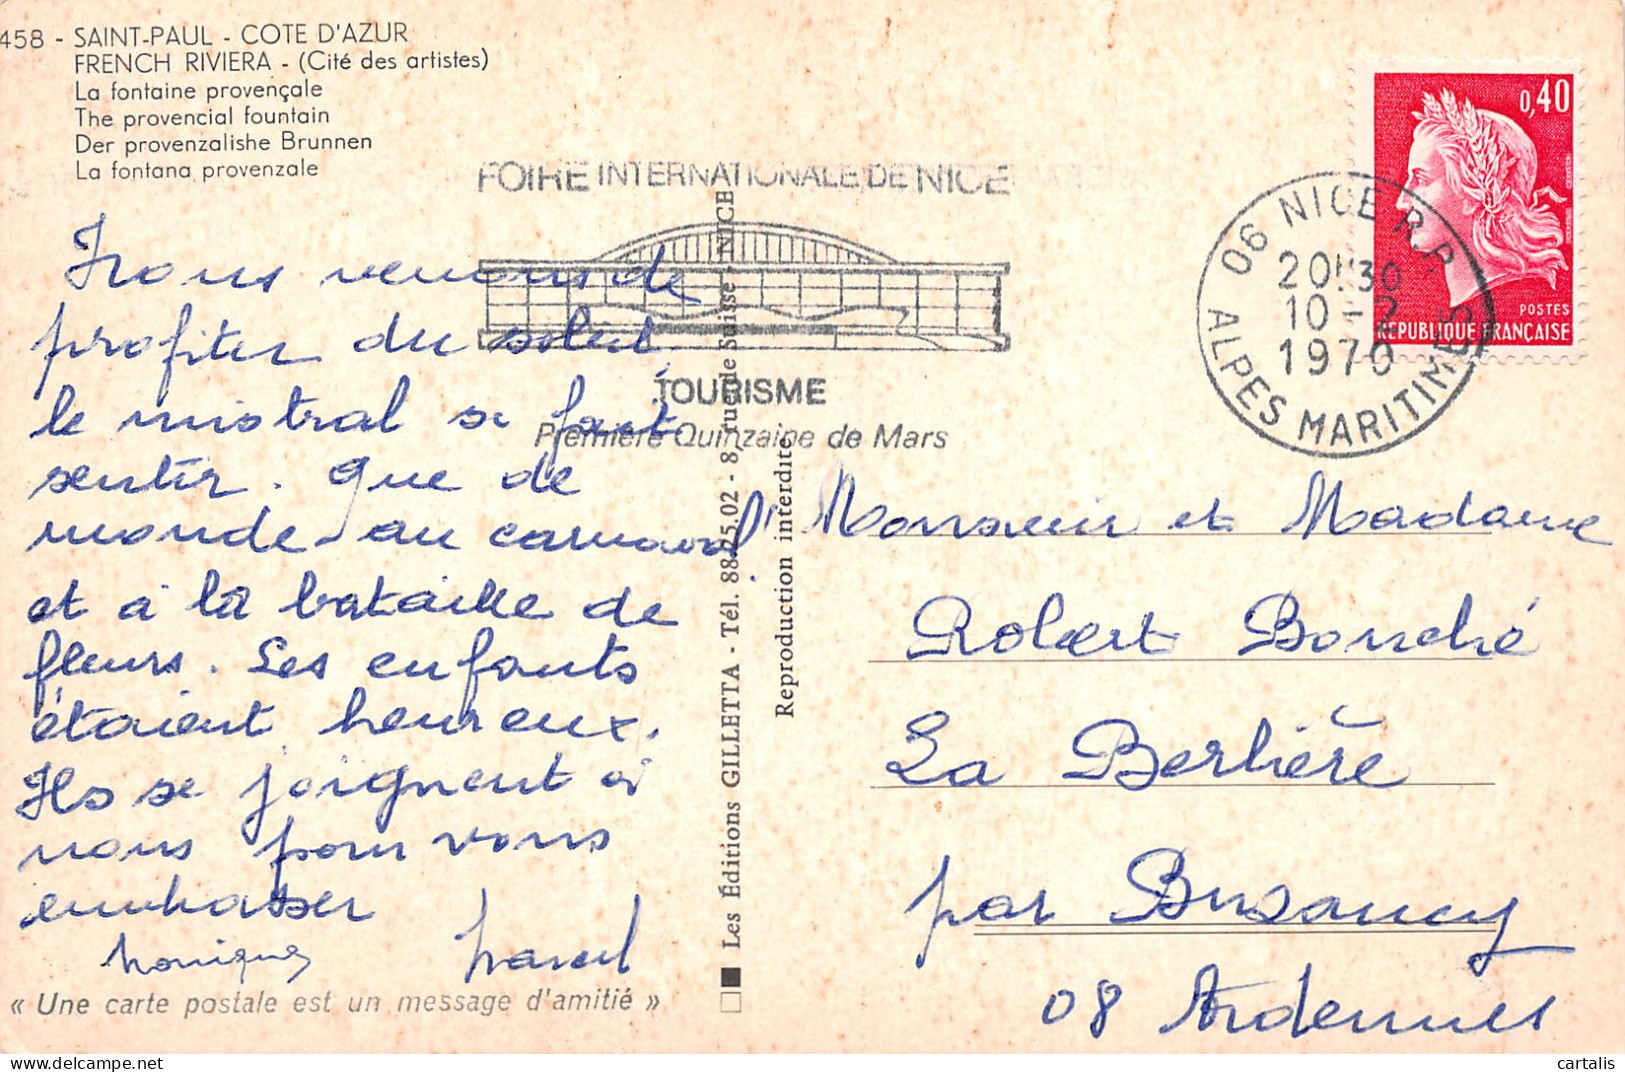 458 - SAINT-PAUL - COTE D'AZUR
FRENCH RIVIERA - (Cité des artistes)
La fontaine provençale
The provencial fountain
Der provenzalishe Brunnen
La fontana provenzale
FOIRE INTERNATIONALE DE NICE
TOURISME
Première Quinzaine de Mars
0,40
POSTES
REPUBLIQUE FRANÇAISE
06 NICE R.P.
20H30
10-2
1970
ALPES MARITIMES
Nous venons de
profiter du soleil,
le mistral se fait
sentir. Que de
monde au carnaval
et à la bataille de
fleurs. Les enfants
étaient heureux.
Ils se joignent à
nous pour vous
embrasser
Monique Marcel
« Une carte postale est un message d'amitié »
Les Éditions GILLETTA - Tél. 88.25.02 - 8, rue de Suisse - NICE
Reproduction interdite
Monsieur et Madame
Robert Bouché
La Berlière
par Buzancy
08 Ardennes
cartalis